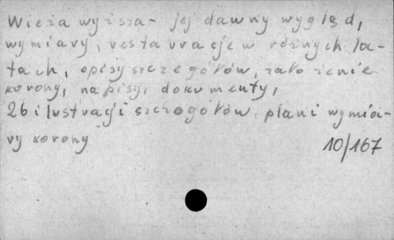 Wieża wyższa - jej dawny wygląd,
wymiary, restauracje w różnych la-
tach, opisy szczegółów, założenie
korony, napisy, dokumenty,
26 ilustracji szczegółów, plan i wymia-
ry korony
10/167